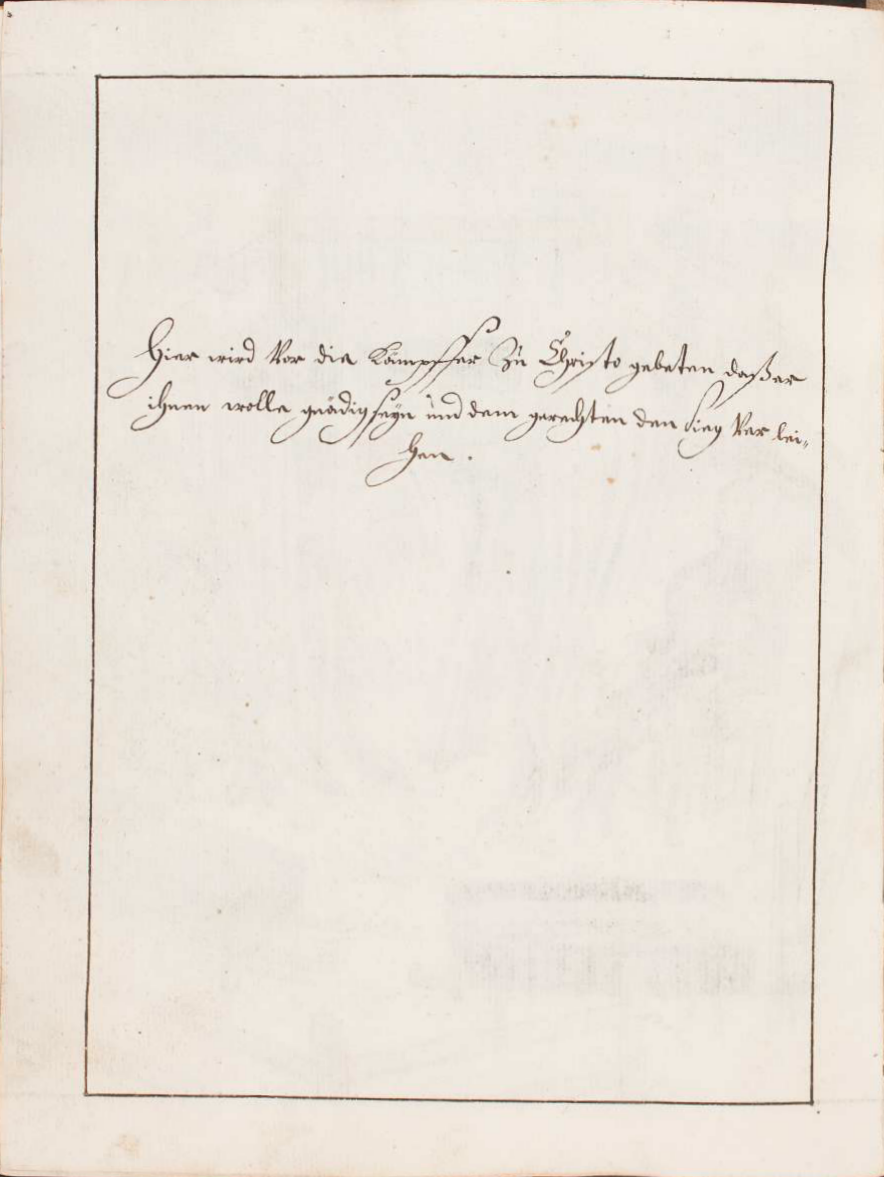 Hier wird Vor die Kämpffer Zu Christo gebeten daß er
ihnen wolle gnädig seyn und dem gerechten den sieg Ver lei⸗
hen.